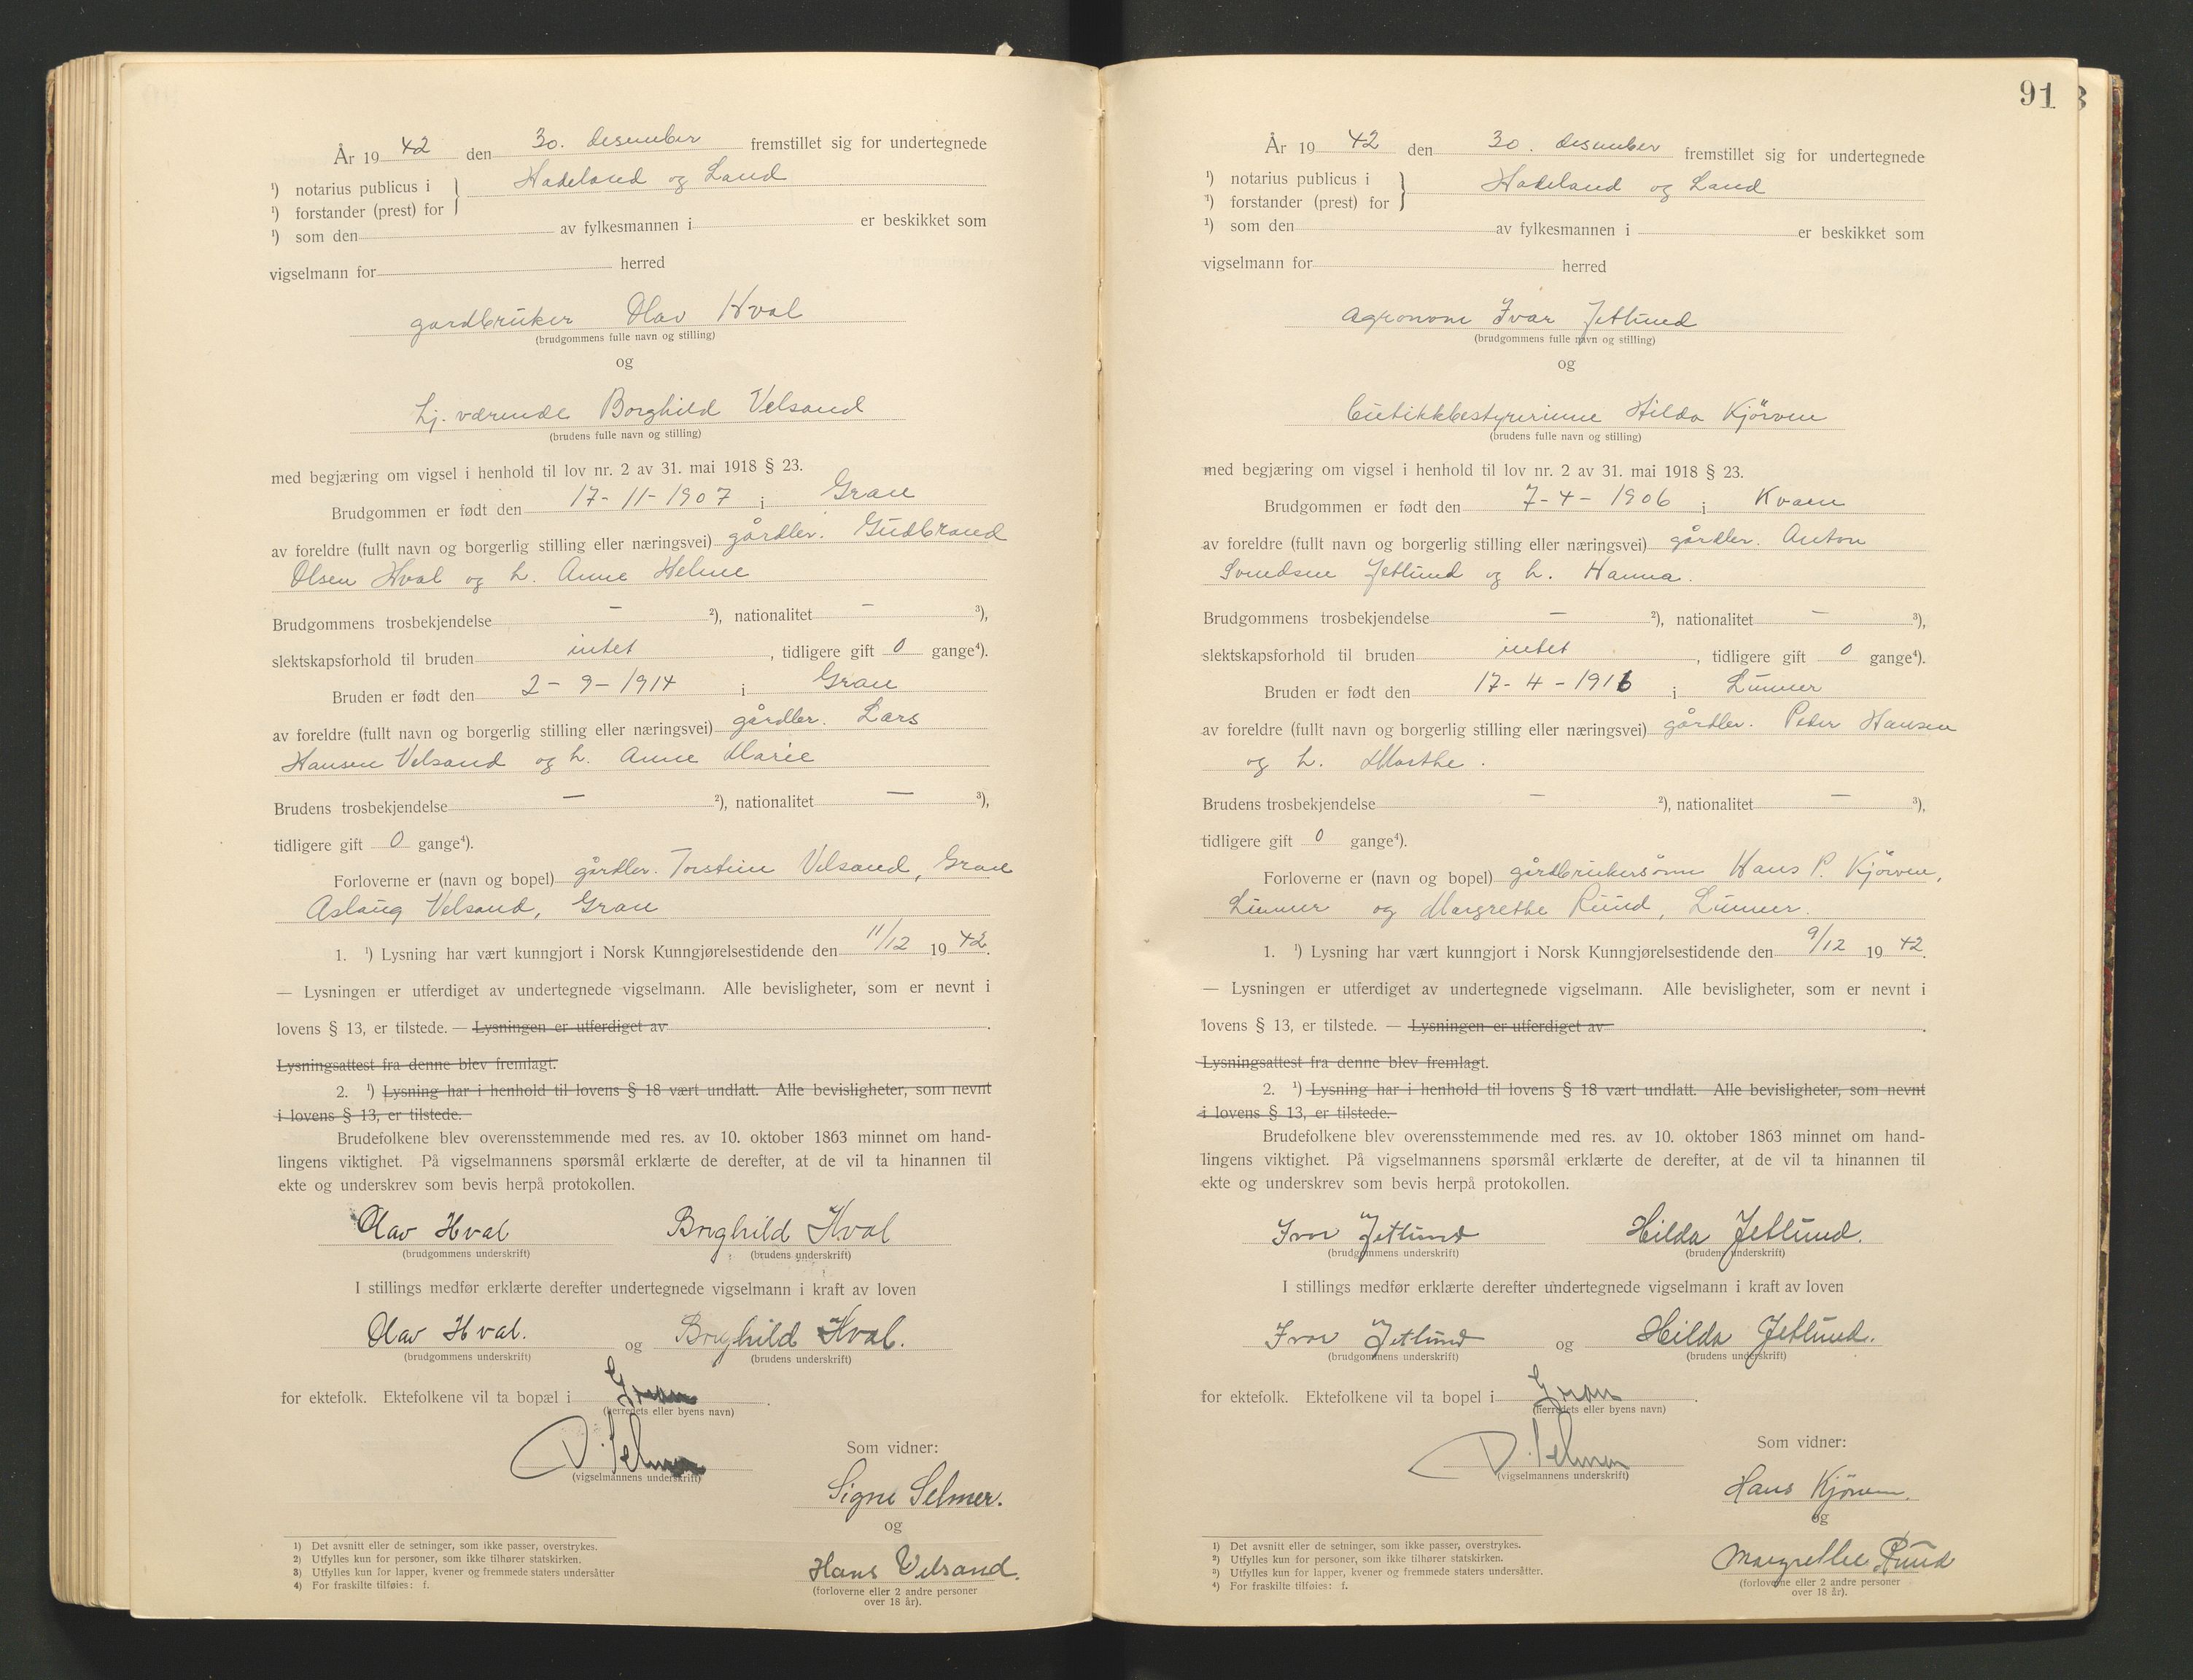 År 19 42 den 30. desember fremstillet sig for undertegnede
¹) notarius publicus i } Hadeland og Land
¹) forstander (prest) for
¹) som den av fylkesmannen i er beskikket som
vigselmann for herred
gardbruker Olav Hval
(brudgommens fulle navn og stilling)
og
hj. værende Borghild Velsand
(brudens fulle navn og stilling)
med begjæring om vigsel i henhold til lov nr. 2 av 31. mai 1918 § 23.
Brudgommen er født den 17-11-1907 i Gran
av foreldre (fullt navn og borgerlig stilling eller næringsvei) gårdbr. Gudbrand
Olsen Hval og h. Anne Helene
Brudgommens trosbekjendelse — ²), nationalitet — ³),
slektskapsforhold til bruden intet, tidligere gift 0 gange⁴).
Bruden er født den 2-9-1914 i Gran
av foreldre (fullt navn og borgerlig stilling eller næringsvei) gårdbr. Lars
Hansen Velsand og h. Anne Marie
Brudens trosbekjendelse — ²), nationalitet — ³),
tidligere gift 0 gange⁴).
Forloverne er (navn og bopel) gårdbr. Torstein Velsand, Gran
Aslaug Velsand, Gran
1. ¹) Lysning har vært kunngjort i Norsk Kunngjørelsestidende den 11/12 19 42.
— Lysningen er utferdiget av undertegnede vigselmann. Alle bevisligheter, som er nevnt i
lovens § 13, er tilstede. — Lysningen er utferdiget av .
Lysningsattest fra denne blev fremlagt.
2. ¹) Lysning har i henhold til lovens § 18 vært undlatt. Alle bevisligheter, som nevnt
i lovens § 13, er tilstede.
Brudefolkene blev overensstemmende med res. av 10. oktober 1863 minnet om hand-
lingens viktighet. På vigselmannens spørsmål erklærte de derefter, at de vil ta hinannen til
ekte og underskrev som bevis herpå protokollen.
Olav Hval Borghild Hval
(brudgommens underskrift) (brudens underskrift)
I stillings medfør erklærte derefter undertegnede vigselmann i kraft av loven
Olav Hval. og Borghild Hval.
(brudgommens underskrift) (brudens underskrift)
for ektefolk. Ektefolkene vil ta bopæl i Gran.
(herredets eller byens navn)
D. Selmer
(vigselmannens underskrift)
Som vidner:
Signe Selmer.
og
Hans Velsand.
(forloverne eller 2 andre personer
over 18 år).
1) Det avsnitt eller de setninger, som ikke passer, overstrykes.
2) Utfylles kun for personer, som ikke tilhører statskirken.
3) Utfylles kun for lapper, kvener og fremmede staters undersåtter
4) For fraskilte tilføies: f.
91
År 19 42 den 30. desember fremstillet sig for undertegnede
¹) notarius publicus i } Hadeland og Land
¹) forstander (prest) for
¹) som den av fylkesmannen i er beskikket som
vigselmann for herred
agronom Ivar Jetlund
(brudgommens fulle navn og stilling)
og
butikkbestyrerinne Hilda Kjörven
(brudens fulle navn og stilling)
med begjæring om vigsel i henhold til lov nr. 2 av 31. mai 1918 § 23.
Brudgommen er født den 7-4-1906 i Kvam
av foreldre (fullt navn og borgerlig stilling eller næringsvei) gårdbr. Anton
Svendsen Jetlund og h. Hanna.
Brudgommens trosbekjendelse — ²), nationalitet — ³),
slektskapsforhold til bruden intet, tidligere gift 0 gange⁴).
Bruden er født den 17-4-1916 i Lunner
av foreldre (fullt navn og borgerlig stilling eller næringsvei) gårdbr. Peder Hansen
og h. Marthe.
Brudens trosbekjendelse — ²), nationalitet — ³),
tidligere gift 0 gange⁴).
Forloverne er (navn og bopel) gårdbrukersönn Hans P. Kjörven,
Lunner og Margrethe Ruud, Lunner.
1. ¹) Lysning har vært kunngjort i Norsk Kunngjørelsestidende den 9/12 19 42.
— Lysningen er utferdiget av undertegnede vigselmann. Alle bevisligheter, som er nevnt i
lovens § 13, er tilstede. — Lysningen er utferdiget av .
Lysningsattest fra denne blev fremlagt.
2. ¹) Lysning har i henhold til lovens § 18 vært undlatt. Alle bevisligheter, som nevnt
i lovens § 13, er tilstede.
Brudefolkene blev overensstemmende med res. av 10. oktober 1863 minnet om hand-
lingens viktighet. På vigselmannens spørsmål erklærte de derefter, at de vil ta hinannen til
ekte og underskrev som bevis herpå protokollen.
Ivar Jetlund Hilda Jetlund.
(brudgommens underskrift) (brudens underskrift)
I stillings medfør erklærte derefter undertegnede vigselmann i kraft av loven
Ivar Jetlund og Hilda Jetlund.
(brudgommens underskrift) (brudens underskrift)
for ektefolk. Ektefolkene vil ta bopel i Gran.
(herredets eller byens navn)
D. Selmer
(vigselmannens underskrift)
Som vidner:
Hans Kjörven.
og
Margrethe Ruud
(forloverne eller 2 andre personer
over 18 år).
¹) Det avsnitt eller de setninger, som ikke passer, overstrykes.
²) Utfylles kun for personer, som ikke tilhører statskirken.
³) Utfylles kun for lapper, kvener og fremmede staters undersåtter.
⁴) For fraskilte tilføies: f.